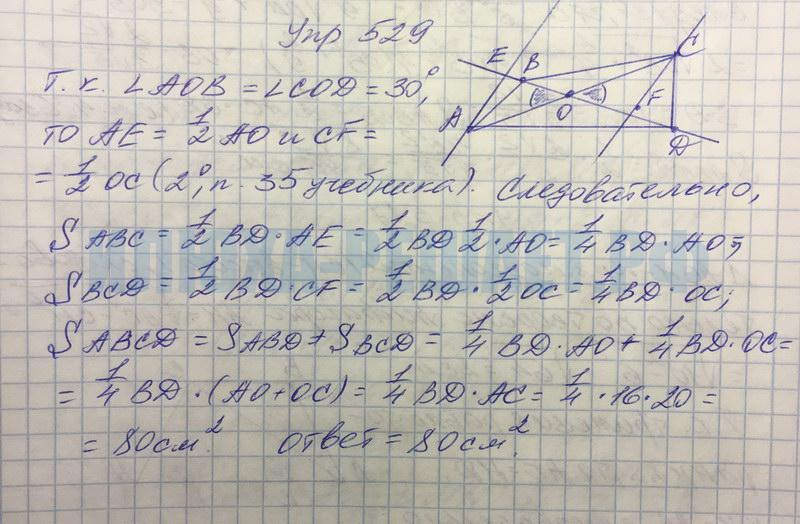 Упр 529
Т.к. ∠AOB = ∠COD = 30°,
то AE = 1/2 AO и CF =
= 1/2 OC (2°, п. 35 учебника). Следовательно,
S ABC = 1/2 BD · AE = 1/2 BD 1/2 · AO = 1/4 BD · AO;
S BCD = 1/2 BD · CF = 1/2 BD · 1/2 OC = 1/4 BD · OC;
S ABCD = S ABD + S BCD = 1/4 BD · AO + 1/4 BD · OC =
= 1/4 BD · (AO + OC) = 1/4 BD · AC = 1/4 · 16 · 20 =
= 80 см². ответ = 80 см².
E B C
A O F
D